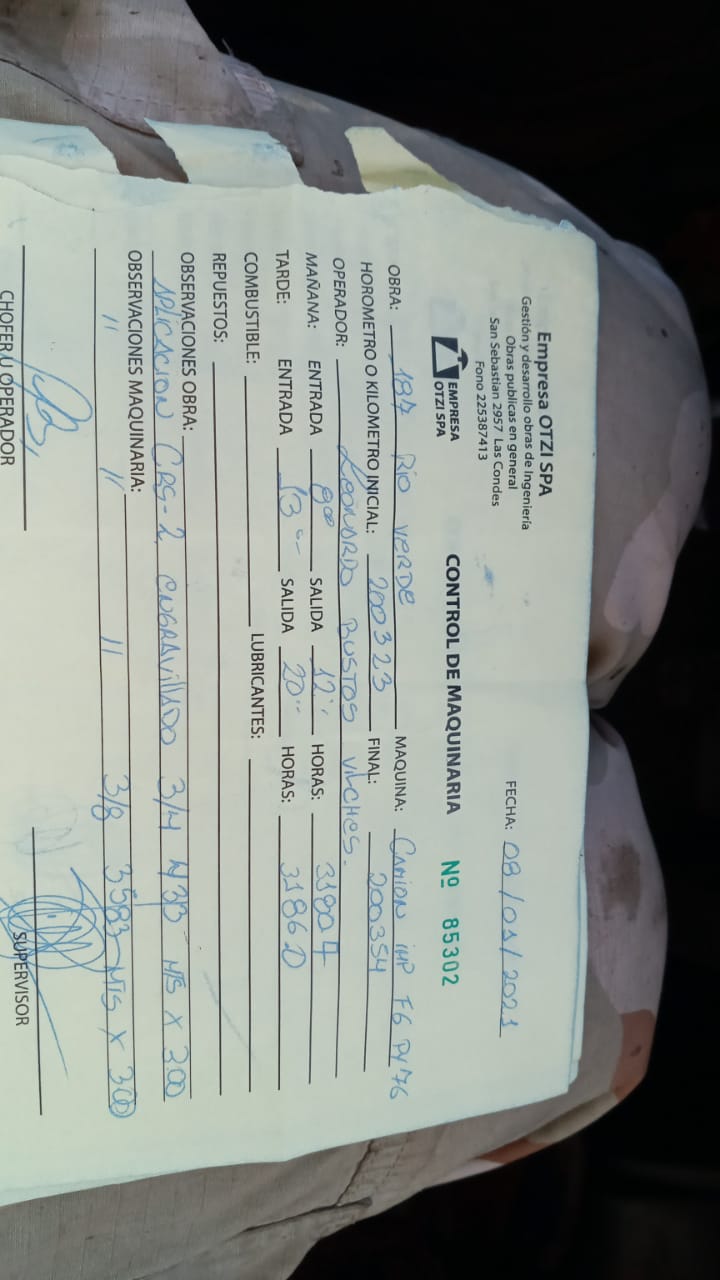 Empresa OTZI SPA
Gestión y desarrollo obras de Ingeniería
Obras publicas en general
San Sebastian 2957 Las Condes
Fono 225387413
FECHA: 08/01/2021
EMPRESA
OTZI SPA
CONTROL DE MAQUINARIA Nº 85302
OBRA: 187 Rio Verde MAQUINA: Camion imp F6 Py76
HOROMETRO O KILOMETRO INICIAL: 200323 FINAL: 200354
OPERADOR: Leonardo Bustos Vilches.
MAÑANA: ENTRADA 800 SALIDA 12 HORAS: 3180.7
TARDE: ENTRADA 13 SALIDA 20 HORAS: 3186.0
COMBUSTIBLE: LUBRICANTES:
REPUESTOS:
OBSERVACIONES OBRA:
Aplicacion CRS-2 engravillado 3/4 433 MTS x 3.00
OBSERVACIONES MAQUINARIA:
" " " 3/8 3583 MTS x 300
CHOFER U OPERADOR SUPERVISOR